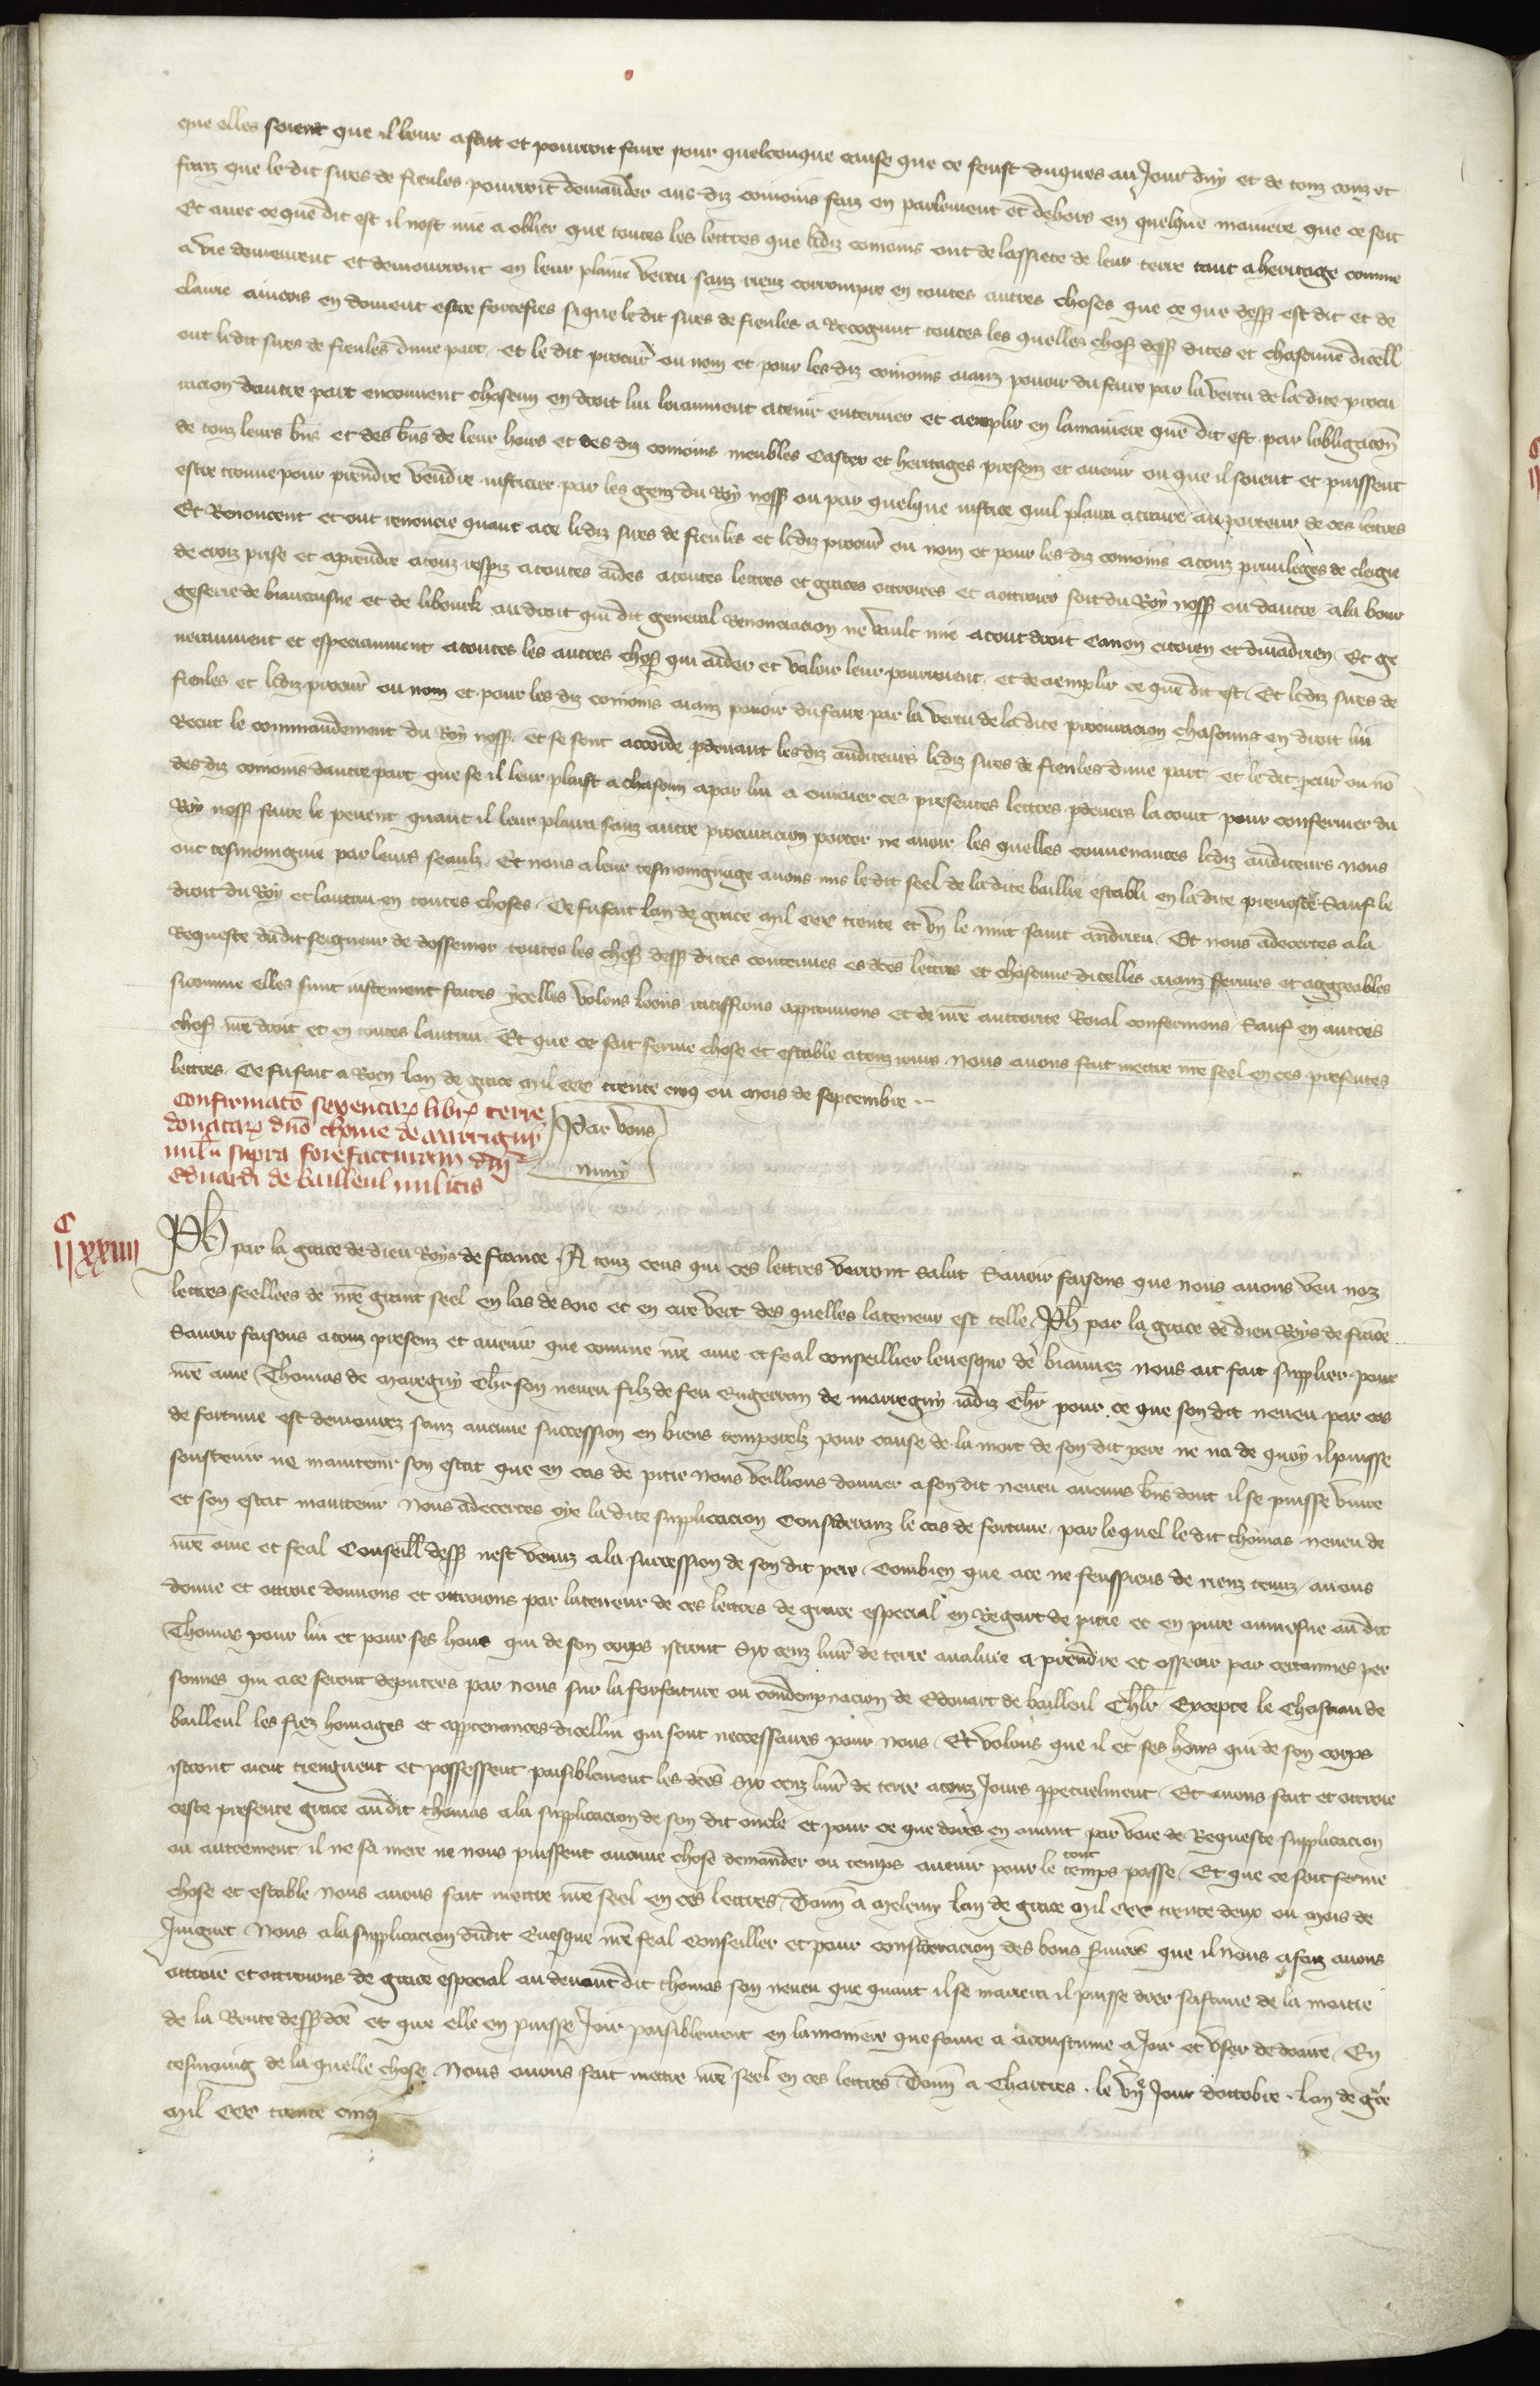 que elles soient que il leur a fait et pourroit faire pour quelconque cause que ce feust duques au Jour duy et de touz couz et
faiz que le dit sires de fieules pourroit demander aus diz conioins faiz en parlement et dehors en quelque maniere que ce soit
Et avec ce que dit est il nest mie a oblier que toutes les lettres que lesdiz conioins ont de lassiete de leur terre tant a heritage comme
a vie demeurent et demourront en leur plaine vertu sanz riens corrompre en toutes autres choses que ce que dess est dit et de
claire aincois en doivent estre fortefies si que le dit sires de fieules a Recognut toutes les quelles chos dess dites et chascune dicell
ont ledit sires de fieules dune part et le dit procur ou nom et pour les diz conioins aianz povoir du faire par la vertu de la dite procu
racion dautre part en covent chascun en droit lui loiaument a tenir enteriner et acomplir en la maniere que dit est par lobligacion
de touz leurs bns et des bns de leur hoirs et des diz conioins meubles Castex et heritages presenz et avenir ou que il soient et puissent
estre trouve pour prendre vendre iusticier par les genz du Roy noss ou par quelque iustice quil plaira a traire au porteur de ces lettres
Et Renoncent et ont renoncie quant a ce lesdiz sires de fieules et lesdiz procur ou nom et pour les diz conioins a touz privileges de clergie
de croiz prise et a prendre a touz respiz a toutes aides a toutes lettres et graces ottroiees et a ottroier soit du Roy noss ou dautre a la bour
gesie de biauquesne et de libourk au droit qui dit general Renonciacion ne vault mie a tout droit Canon citoien et divadrien Et ge
neraument et especiaument a toutes les autres chos qui aider et valoir leur pourroient et de acomplir ce que dit est Et lesdiz sires de
fieules et lesdiz procur ou nom et pour les diz conioins aianz povoir du faire par la vertu de la dite procuracion chascuns en droit lui
Recut le commandement du Roy noss et se sont accorde pdevant lesdiz auditeurs lesdiz sires de fieules dune part et le dit pcur ou no
des diz conioins dautre part que se il leur plaist a chascun a par lui a envoier ces presentes lettres pdevers la court pour confermer du
Roy noss faire le pevent quant il leur plaira sanz autre procuracion porter ne avoir les quelles convenances lesdiz auditeurs nous
ont tesmoingnie par leurs seaulz Et nous a leur tesmoingnage avons mis le dit seel de la dite baillie establi en la dite prevoste Sauf le
droit du Roy et lautrui en toutes choses Ce fu fait lan de grace mil ccc trente et vn le nuit saint andrieu Et nous adecertes a la
Requeste dudit seigneur de dossemer toutes les chos dess dites contenues es dces lettres et chascune dicelles aianz fermes et aggreables
sicomme elles sunt iustement faites ycelles volons loons ratiffions approuvons et de nre auctorite Roial confermons Sauf en autres
chos nre droit et en toutes lautrui Et que ce soit ferme chose et estable a touz iours nous avons fait mettre nre seel en ces presentes
lettres Ce fu fait a Roen lan de grace mil ccc trente cinq ou mois de septembre
Confirmato sexentar libr terre
donatar dno thome de marrigny
mil supra forefacturam dni
Eduardi de bailleul militis
Par vous
c
ii xxiiii
Ph par la grace de dieu Roys de france A touz ceus qui ces lettres verront Salut Savoir faisons que nous avons veu noz
lettres seellees de nre grant seel en las de soie et en cire vert des quelles la teneur est telle Ph par la grace de dieu Roys de france
Savoir faisons a touz presenz et avenir que comme nre ame et feal conseillier levesque de biauvez nous ait fait supplier pour
nre ame Thomas de maregny chlr son neveu filz de feu Engerran de marregny iadiz chlr pour ce que son dit neveu par cas
de fortune est demourez sanz aucune succession en biens temporelz pour cause de la mort de son dit pere ne na de quoy il puisse
soustenir ne maintenir son estat que en cas de pitie nous veillions donner a son dit neveu aucuns bns dont il se puisse vivre
et son estat maintenir Nous adecertes oye la dite supplicacion Consideranz le cas de fortune par le quel le dit thomas neveu de
nre ame et feal Conseill dess nest venuz a la succession de son dit pere Combien que a ce ne feussiens de rienz tenuz avons
donne et ottroie donnons et ottroions par la teneur de ces lettres de grace especial en Regart de pitie et en pure aumosne au dit
Thomas pour lui et pour ses hoirs qui de son corps istront Six cenz livr de terre a value a prendre et asseoir par certaines per
sonnes qui a ce seront deputees par nous sur la forfaiture ou condempnacion de Edouart de bailleul Chlr Excepte le Chastiau de
bailleul les fiez homages et appartenances dicellui qui sont neccessaires pour nous Et volons que il et ses hoirs qui de son corps
istront aient tiengnent et possessent paisiblement les dces Six cenz livr de terre a touz Jours ppetuelment Et avons fait et ottroie
ceste presente grace au dit thomas a la supplicacion de son dit oncle et pour ce que dores en avant par voie de Requeste supplicacion
ou autrement il ne sa mere ne nous puissent aucune chose demander ou temps avenir pour le tout temps passe Et que ce soit ferme
chose et estable nous avons fait mettre nre seel en ces lettres Donn a meleun lan de grace mil ccc trente deux ou mois de
Juignet Nous a la supplicacion dudit Evesque nre feal conseiller et pour consideracion des bons servises que il nous a faiz avons
ottroie et ottroions de grace especial au devant dit thomas son neveu que quant il se mariera il puisse doer sa fame de la moitie
de la Rente dess dce et que elle en puisse Joir paisiblement en la maniere que fame a acoustume a Joir et user de doaire En
tesmoing de la quelle chose Nous avons fait mettre nre seel en ces lettres Donn a Chartres le vije Jour doctobre lan de gre
mil ccc trente cinq